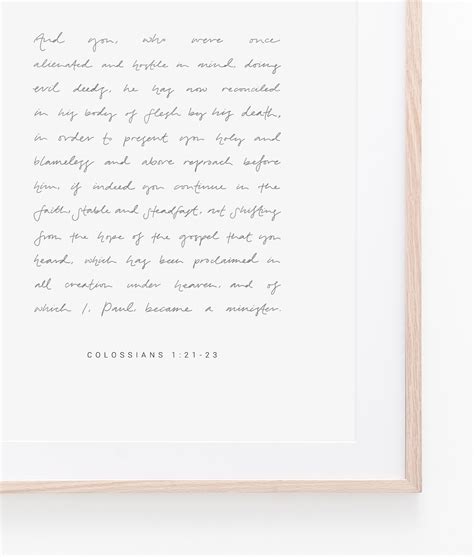 And you, who were once
alienated and hostile in mind, doing
evil deeds, he has now reconciled
in his body of flesh by his death,
in order to present you holy and
blameless and above reproach before
him, if indeed you continue in the
faith, stable and steadfast, not shifting
from the hope of the gospel that you
heard, which has been proclaimed in
all creation under heaven, and of
which I, Paul, became a minister.
COLOSSIANS 1:21-23